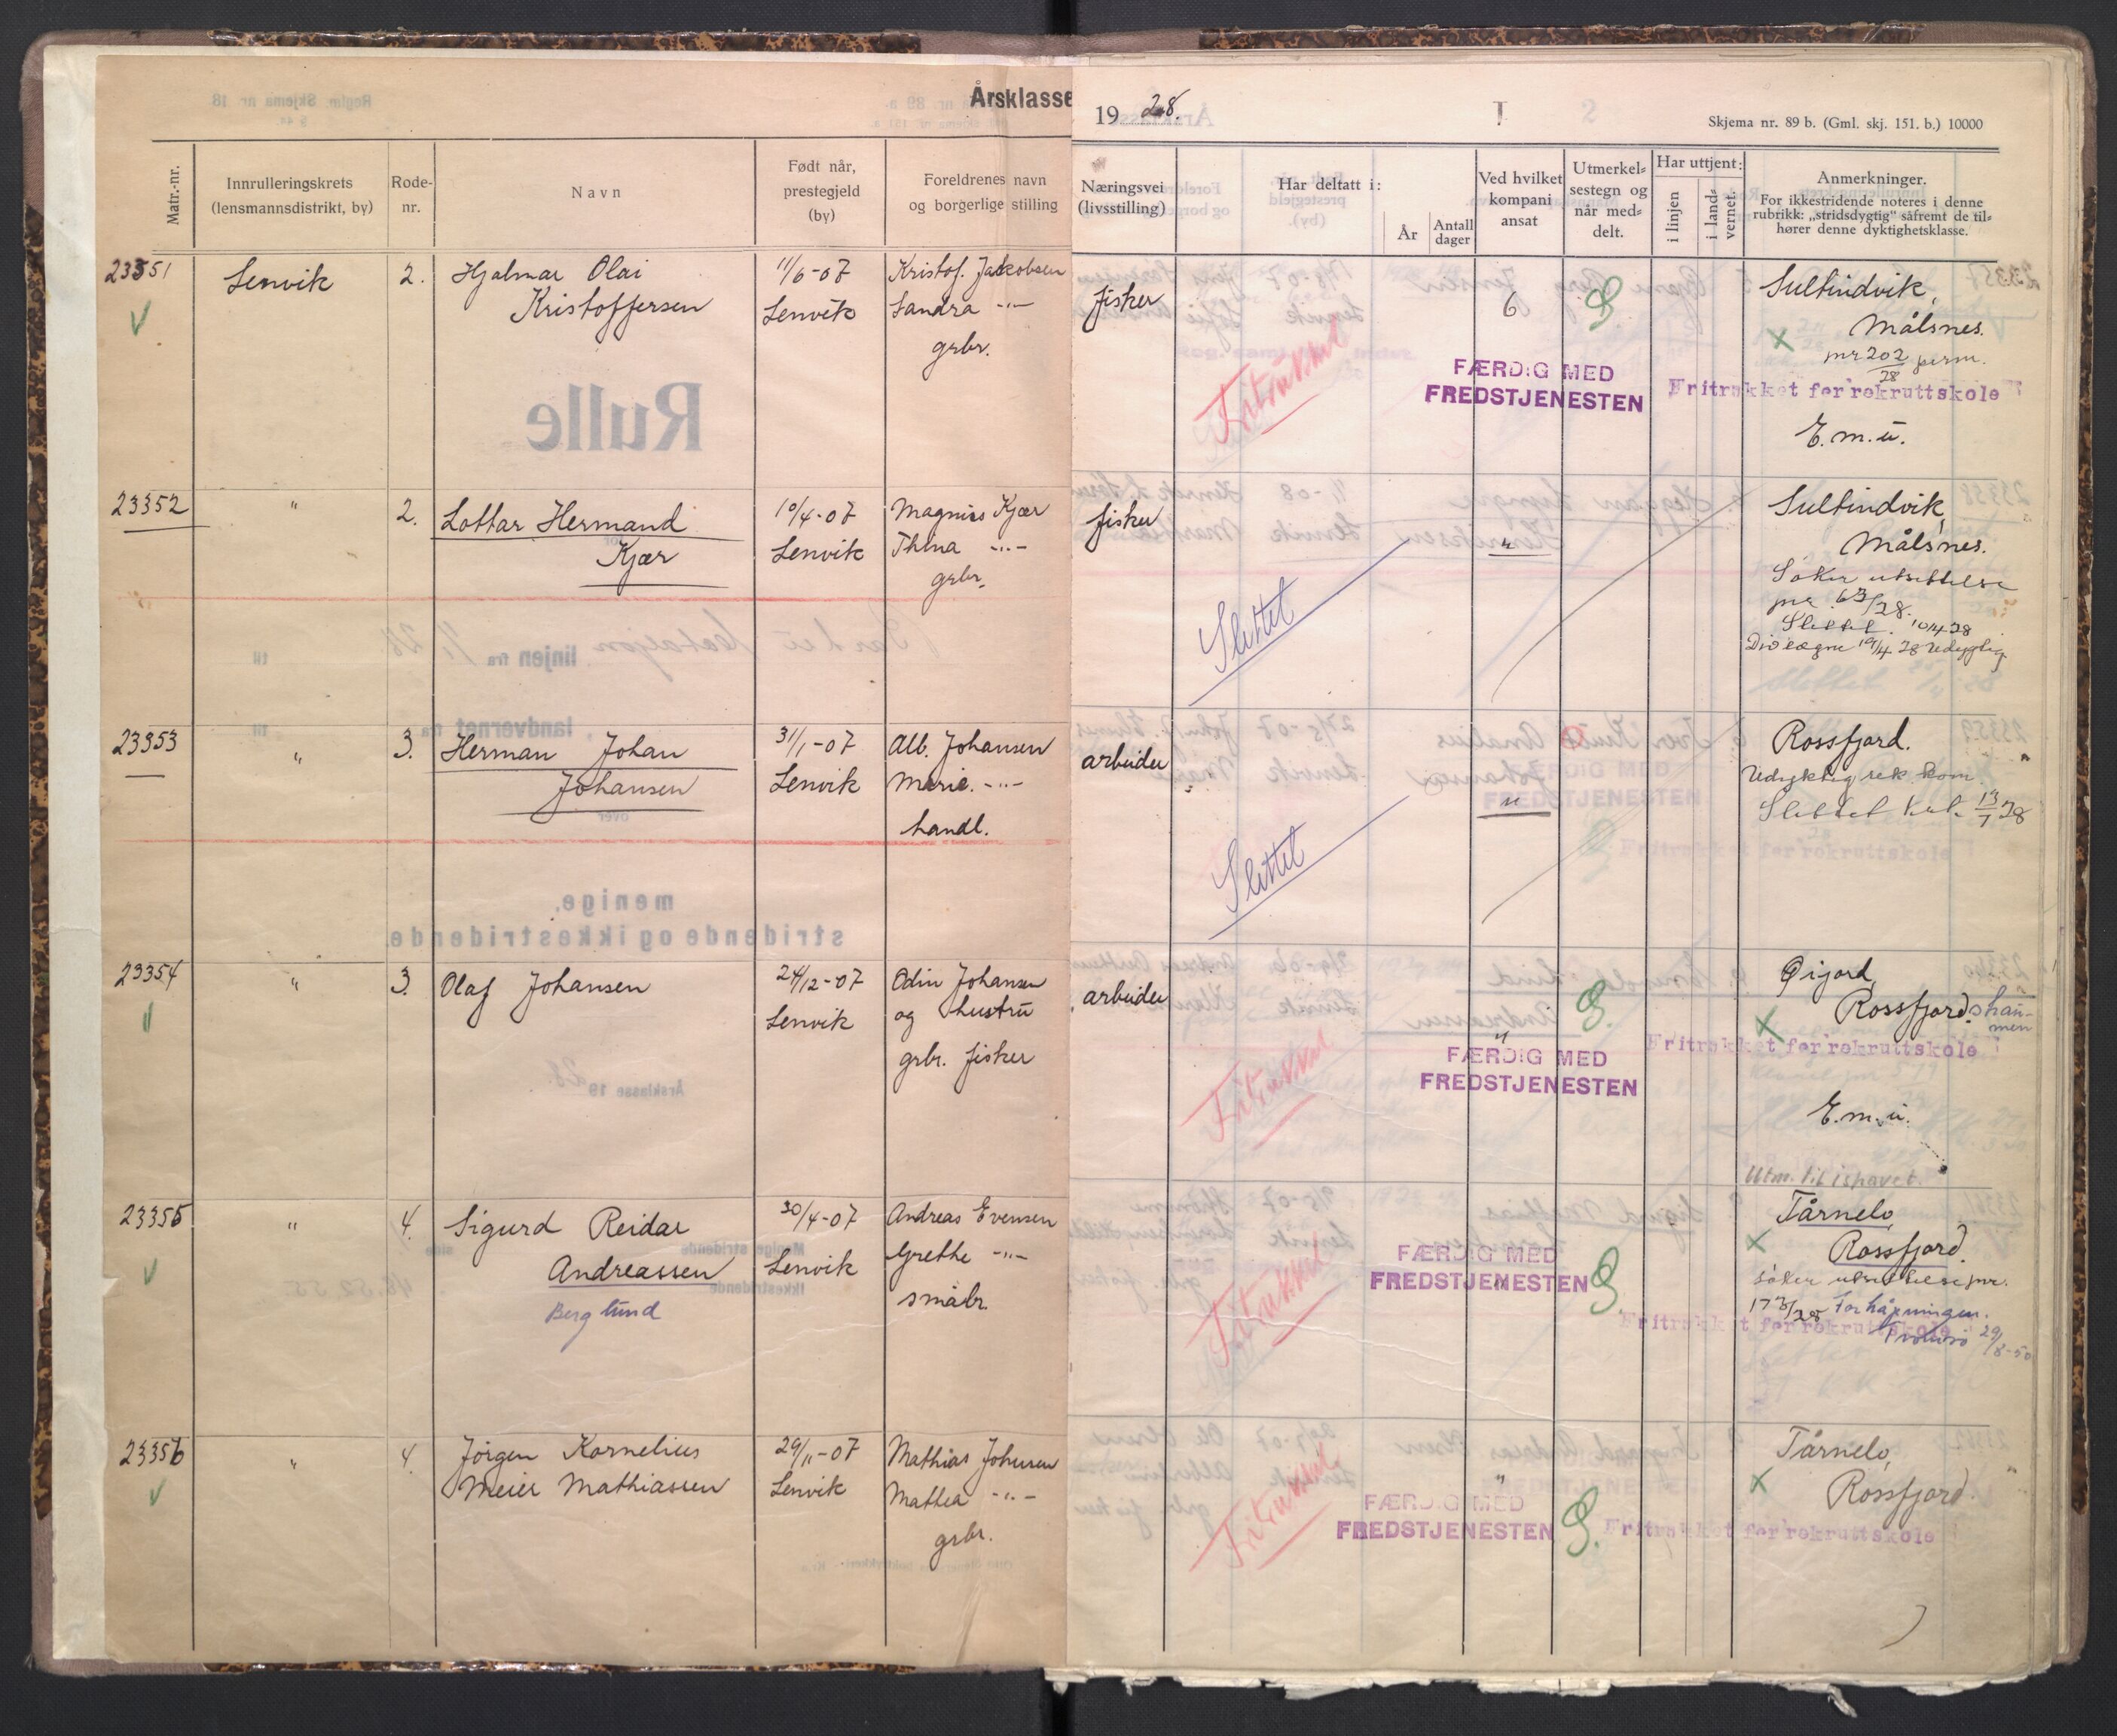 Årsklasse 1928.
I
Skjema nr. 89 b. (Gml. skj. 151. b.) 10000
Matr.-nr.
Innrulleringskrets
(lensmannsdistrikt, by)
Rode-
nr.
Navn
Født når,
prestegjeld
(by)
Foreldrenes navn
og borgerlige stilling
Næringsvei
(livsstilling)
Har deltatt i:
År
Antall
dager
Ved hvilket
kompani
ansat
Utmerkel-
sestegn og
når med-
delt.
Har uttjent:
i linjen
i land-
vernet.
Anmerkninger.
For ikkestridende noteres i denne
rubrikk: „stridsdygtig" såfremt de til-
hører denne dyktighetsklasse.
23351 Lenvik 2. Hjalmar Olai 11/6-07 Kristof. Jakobsen
Kristoffersen Lenvik Sandra -"-
grbr.
fisker 6 Sultindvik,
Målsnes.
pr 202/28 perm.
Fritrukket
FÆRDIG MED
FREDSTJENESTEN
Fritrukket for rekruttskole
E.m.u.
23352 " 2. Lottar Hermand 10/4-07 Magnus Kjær
Kjær Lenvik Thina -"-
grbr.
fisker " Sultindvik,
Målsnes.
Søker utsettelse
Slettet
Slettet 10/4 28
19/4 28 Udygtig
23353 " 3. Herman Johan 31/1-07 Alb. Johansen
Johansen Lenvik Marie -"-
handl.
arbeider " Rossfjord.
Udyktig rek. kom.
Slettet
23354 " 3. Olaf Johansen 24/12-07 Odin Johansen
Lenvik og hustru
grbr. fisker
arbeider " Øijord,
Rossfjordshau-
men
Fritrukket
FÆRDIG MED
FREDSTJENESTEN
Fritrukket for rekruttskole
E.m.u.
Utm. til ishavet.
23355 " 4. Sigurd Reidar 30/4-07 Andreas Evensen
Andreassen Lenvik Grethe -"-
Berglund småbr.
" Tårnelv,
Rossfjord.
søker utsettelse pr.
Forhåpningen.
Tromsø 29/8-50
Fritrukket
FÆRDIG MED
FREDSTJENESTEN
Fritrukket for rekruttskole
23356 " 4. Jörgen Kornelius 29/11-07 Mathias Johnsen
Meier Mathiassen Lenvik Mathea -"-
grbr.
" Tårnelv,
Rossfjord.
Fritrukket
FÆRDIG MED
FREDSTJENESTEN
Fritrukket for rekruttskole